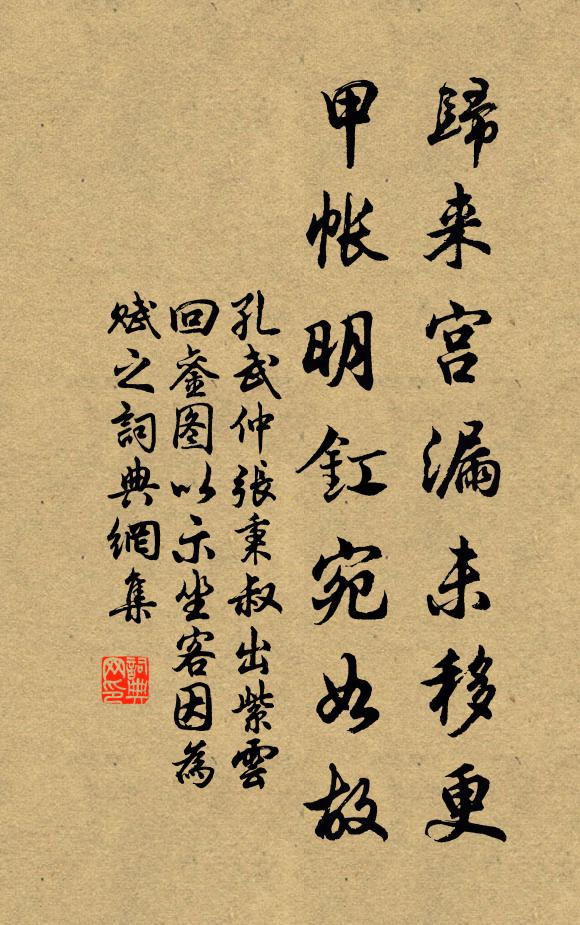 歸来宫漏未移更
甲帐明釭宛如故
孔武仲張秉叔出紫雲
回銮图以示坐客因為
赋之詞典網集
詞典网印